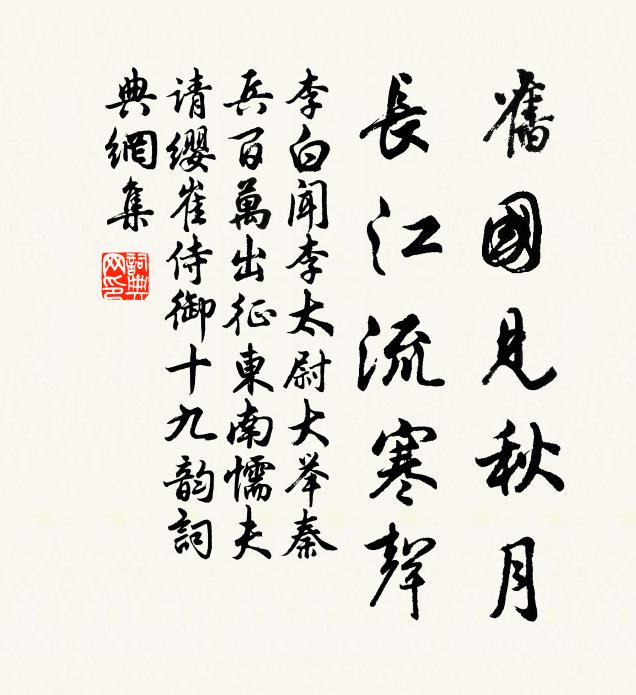 舊國見秋月
長江流寒聲
李白聞李太尉大举秦
兵百萬出征東南懦夫
请纓崔侍御十九韵詞
典網集
詞典
网印